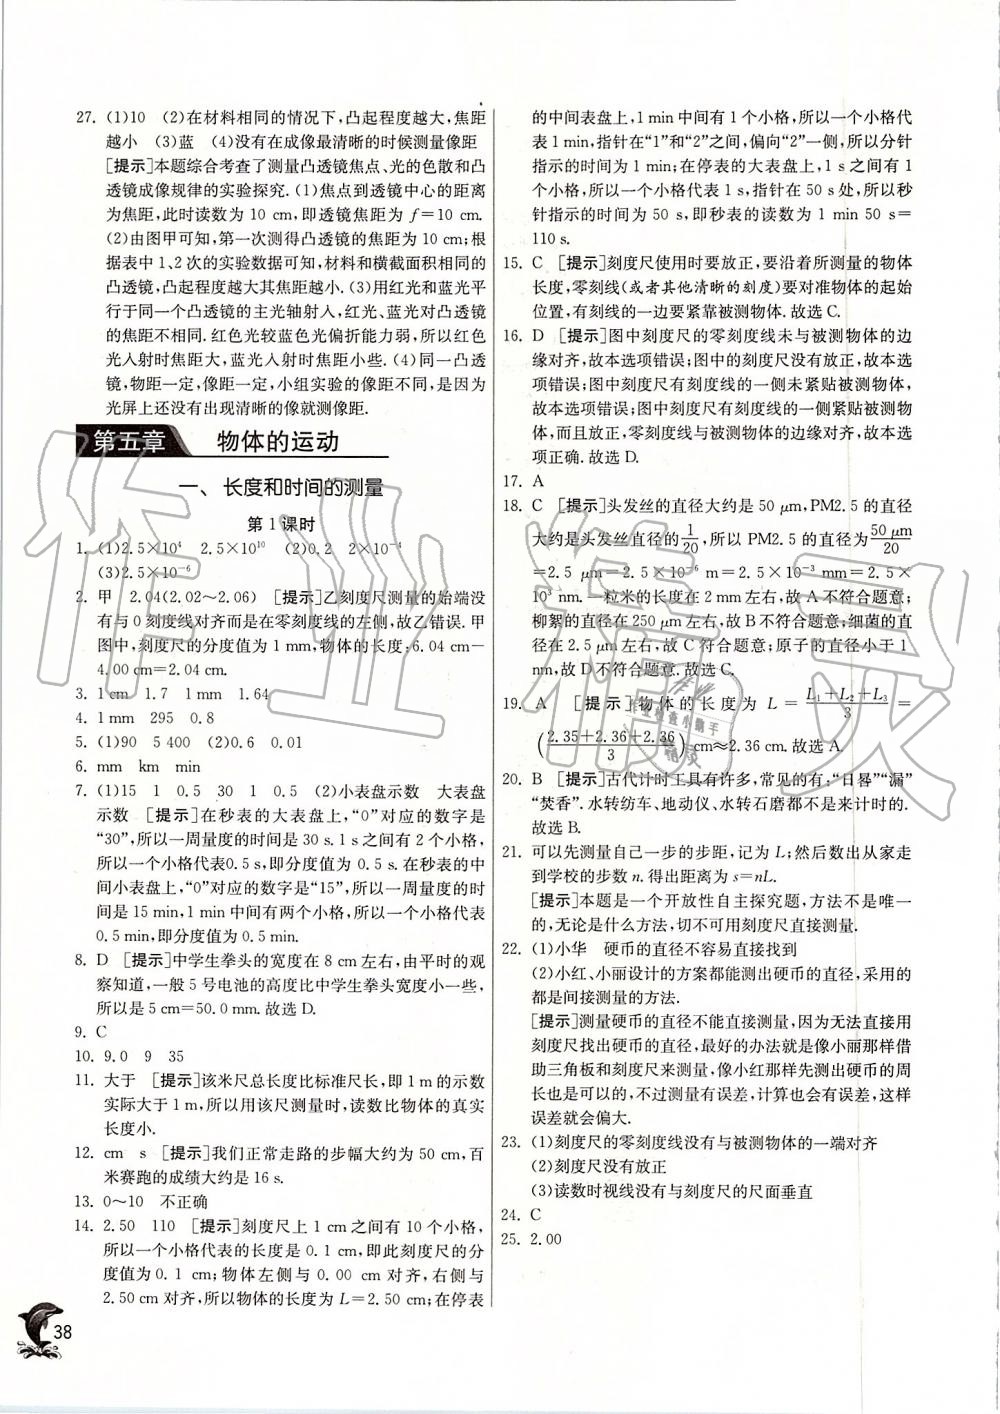 27. (1)10　(2)在材料相同的情况下,凸起程度越大,焦距
越小　(3)蓝　(4)没有在成像最清晰的时候测量像距
[提示]本题综合考查了测量凸透镜焦点、光的色散和凸
透镜成像规律的实验探究.(1)焦点到透镜中心的距离
为焦距,此时读数为 10 cm,即透镜焦距为 f＝10 cm.
(2)由图甲可知,第一次测得凸透镜的焦距为 10 cm;根
据表中1、2次的实验数据可知,材料和横截面积相同的
凸透镜,凸起程度越大其焦距越小.(3)用红光和蓝光平
行于同一个凸透镜的主光轴射入,红光、蓝光对凸透镜
的焦距不相同.红色光较蓝色光偏折能力弱,所以红色
光入射时焦距大,蓝光入射时焦距小些.(4)同一凸透
镜,物距一定,像距一定,小组实验的像距不同,是因为
光屏上还没有出现清晰的像就测像距.
第五章　物体的运动
一、长度和时间的测量
第 1 课时
1. (1)2.5×10⁴　2.5×10¹⁰　(2)0.2　2×10⁻⁴
(3)2.5×10⁻⁶
2. 甲　2.04(2.02～2.06)　[提示]乙刻度尺测量的始端没
有与 0 刻度线对齐而是在零刻度线的左侧,故乙错误.甲
图中,刻度尺的分度值为 1 mm,物体的长度:6.04 cm－
4.00 cm＝2.04 cm.
3. 1 cm　1.7　1 mm　1.64
4. 1 mm　295　0.8
5. (1)90　5 400　(2)0.6　0.01
6. mm　km　min
7. (1)15　1　0.5　30　1　0.5　(2)小表盘示数　大表盘
示数　[提示]在秒表的大表盘上,“0”对应的数字是
“30”,所以一周量度的时间是 30 s.1 s之间有 2 个小格,
所以一个小格代表0.5 s,即分度值为 0.5 s.在秒表的中
间小表盘上,“0”对应的数字是“15”,所以一周量度的时
间是 15 min,1 min 中间有两个小格,所以一个小格代表
0.5 min,即分度值为 0.5 min.
8. D　[提示]中学生拳头的宽度在 8 cm 左右,由平时的观
察知道,一般 5 号电池的高度比中学生拳头宽度小一些,
所以是 5 cm＝50.0 mm.故选 D.
9. C
10. 9.0　9　35
11. 大于　[提示]该米尺总长度比标准尺长,即 1 m 的示数
实际大于 1 m,所以用该尺测量时,读数比物体的真实
长度小.
12. cm　s　[提示]我们正常走路的步幅大约为 50 cm,百
米赛跑的成绩大约是 16 s.
13. 0～10　不正确
14. 2.50　110　[提示]刻度尺上 1 cm 之间有 10 个小格,
所以一个小格代表的长度是 0.1 cm,即此刻度尺的分
度值为 0.1 cm;物体左侧与 0.00 cm 对齐,右侧与
2.50 cm 对齐,所以物体的长度为 L＝2.50 cm;在停表
38
的中间表盘上,1 min 中间有 1 个小格,所以一个小格代
表 0.5 min,指针在“1”和“2”之间,偏向“2”一边,所以分针
指示的时间为 1 min;在停表的大表盘上,1 s 之间有 1
个小格,所以一个小格代表 1 s,指针在 50 s 处,所以秒
针指示的时间为 50 s,即秒表的读数为 1 min 50 s＝
110 s.
15. C　[提示]刻度尺使用时要放正,要沿着所测量的物体
长度,零刻线(或者其他清晰的刻度)要对准物体的起始
位置,有刻线的一边要紧靠被测物体.故选 C.
16. D　[提示]图中刻度尺的零刻度线未与被测物体的边
缘对齐,故本选项错误;图中的刻度尺没有放正,故本选
项错误;图中刻度尺有刻度线的一侧未紧贴被测物体,
故本选项错误;图中刻度尺有刻度线的一侧紧贴被测物
体,而且放正,零刻度线与被测物体的边缘对齐,故本选
项正确.故选 D.
17. A
18. C　[提示]头发丝的直径大约是 50 μm,PM2.5 的直径
大约是头发丝直径的1/20,所以 PM2.5 的直径为50 μm/20
＝2.5 μm＝2.5×10⁻⁶ m＝2.5×10⁻³ mm＝2.5×
10³ nm.一粒米的长度在 2 mm 左右,故 A 不符合题意;
柳絮的直径在 250 μm 左右,故 B 不符合题意;细菌的直
径在 2.5 μm 左右,故 C 符合题意;原子的直径小于 1
nm,故 D 不符合题意.故选 C.
19. A　[提示]物体的长度为 L＝(L₁＋L₂＋L₃)/3＝
((2.35＋2.36＋2.36)/3) cm≈2.36 cm.故选 A.
20. B　[提示]古代计时工具有许多,常见的有:“日晷”“漏”
“焚香”.水转纺车、地动仪、水转石磨都不是来计时的.
故选 B.
21. 可以先测量自己一步的步距,记为 L;然后数出从家走
到学校的步数 n.得出距离为 s＝nL.
[提示]本题是一个开放性自主探究题,方法不是唯一
的,无论是什么方法,切不可用刻度尺直接测量.
22. (1)小华　硬币的直径不容易直接找到
(2)小红、小丽设计的方案都能测出硬币的直径,采用的
都是间接测量的方法.
[提示]测量硬币的直径不能直接测量,因为无法直接用
刻度尺找出硬币的直径,最好的办法就是像小丽那样借
助三角板和刻度尺来测量,像小红那样先测出硬币的周
长也是可以的,不过测量有误差,计算也会有误差,这样
误差就会偏大.
23. (1)刻度尺的零刻度线没有与被测物体的一端对齐
(2)刻度尺没有放正
(3)读数时视线没有与刻度尺的尺面垂直
24. C
25. 2.00
作业精灵